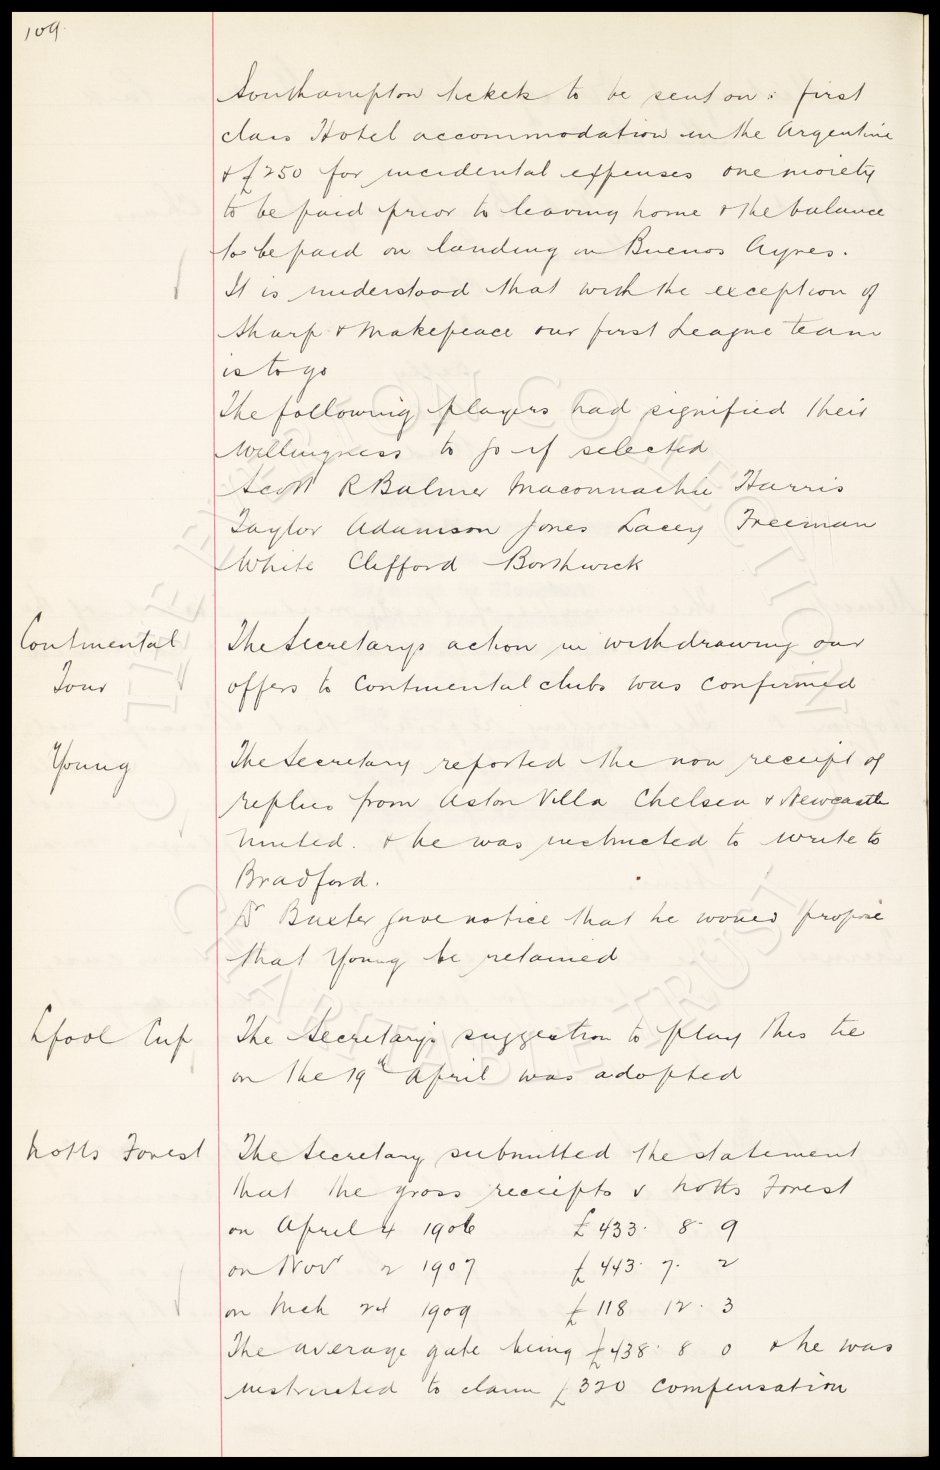 109.
Southampton tickets to be sent on: first
class Hotel accommodation in the Argentine
& £250 for incidental expenses one moiety
to be paid prior to leaving home & the balance
to be paid on landing in Buenos Ayres.
It is understood that with the exception of
Sharp & Makepeace our first League team
is to go
The following players had signified their
willingness to go if selected
Scott R Balmer Maconnachie Harris
Taylor Adamson Jones Lacey Freeman
White Clifford Borthwick
Continental Tour
The Secretarys action in withdrawing our
offers to Continental clubs was confirmed
Young
The Secretary reported the non receipt of
replies from Aston Villa Chelsea & Newcastle
United. & he was instructed to write to
Bradford.
Dr Baxter gave notice that he would propose
that Young be retained
Lpool Cup
The Secretary's suggestion to play this tie
on the 19th April was adopted
Notts Forest
The Secretary submitted the statement
that the gross receipts v Notts Forest
on April 4 1906 £433. 8. 9
on Nov 2 1907 £443. 7. 2
on Mch 24 1909 £118 12. 3
The average gate being £438. 8 0 & he was
instructed to claim £320 compensation
THE EVERTON COLLECTION
CHARITABLE TRUST